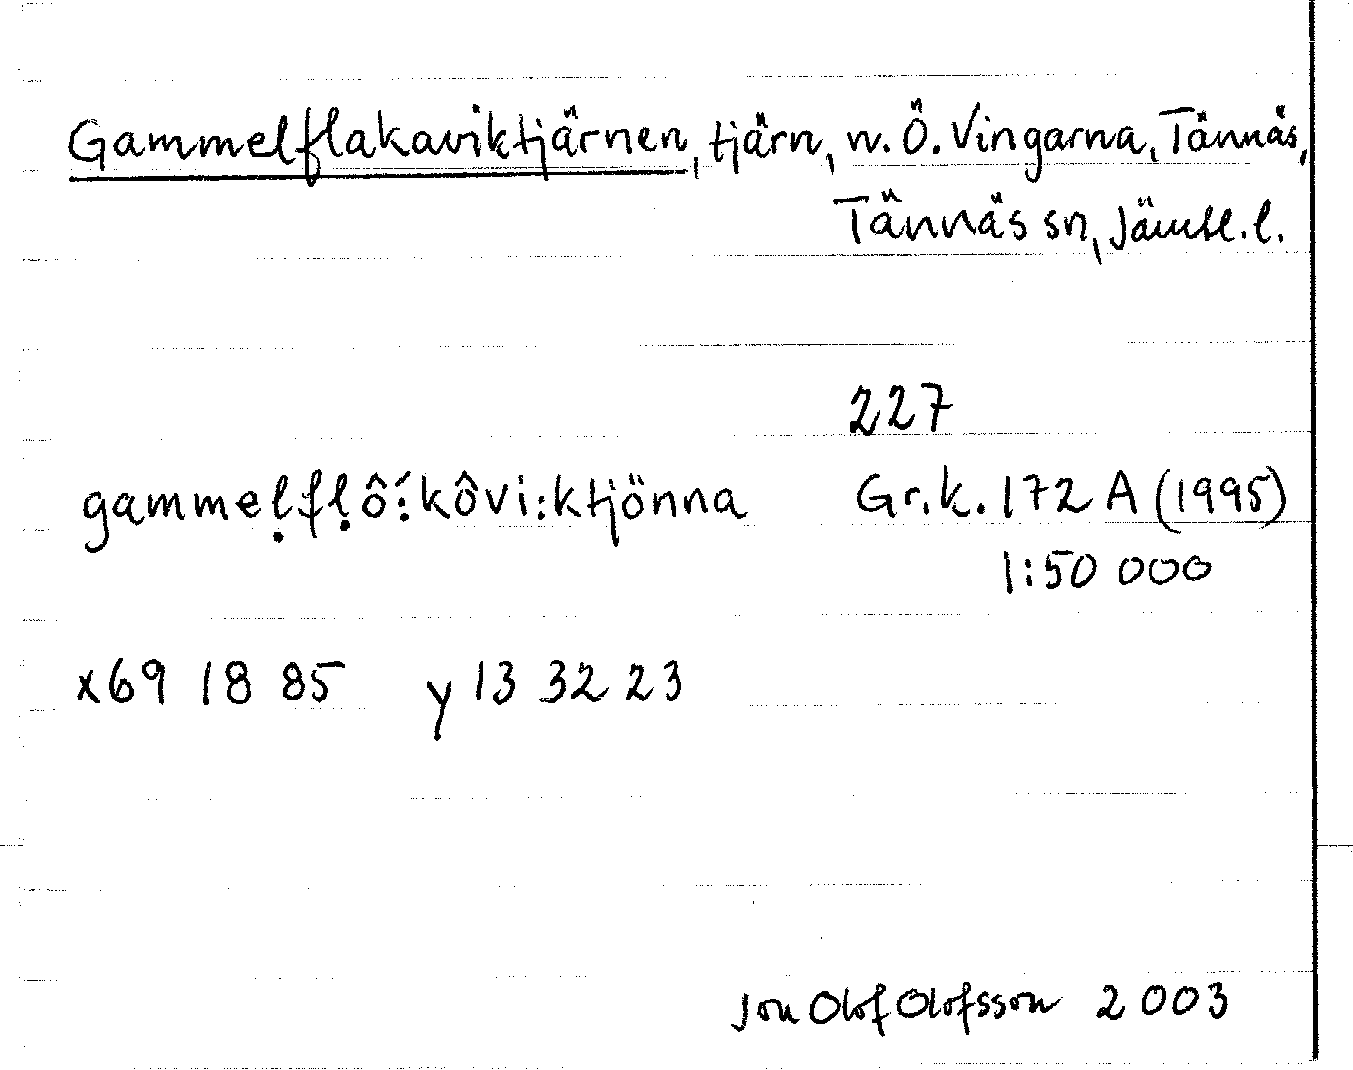 Gammelflakaviktjärnen, tjärn, n. Ö. Vingarna, Tännäs,
Tännäs sn, Jämtl. l.
227
gammeḷfḷô:́kôvi:ktjönna Gr.k. 172 A (1995)
1:50 000
x69 18 85 y 13 32 23
Jon Olof Olofsson 2003